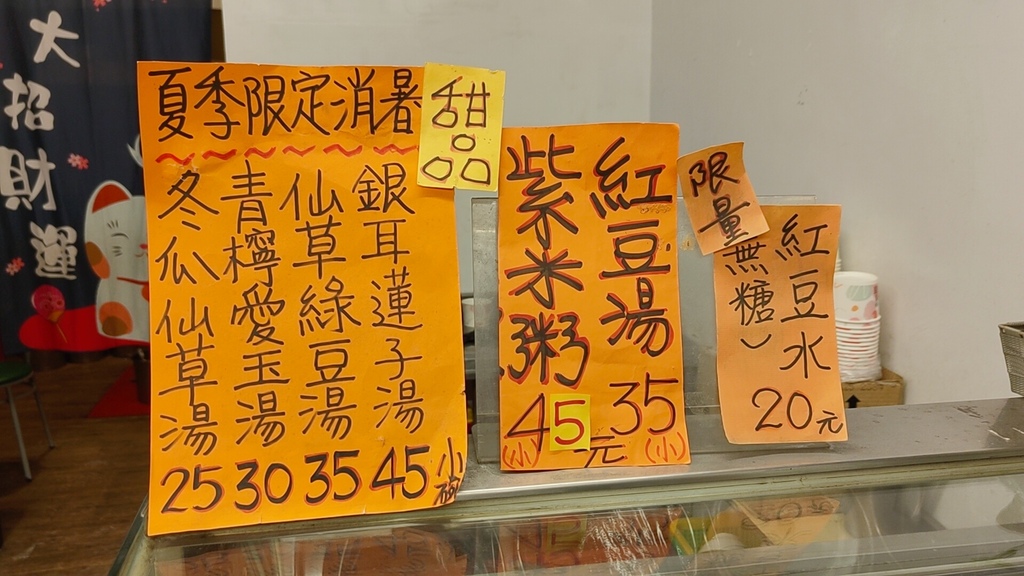 大招財運
夏季限定消暑
甜品
銀耳蓮子湯 45
仙草綠豆湯 35
青檸愛玉湯 30
冬瓜仙草湯 25
小碗
紅豆湯 35
(小)
紫米粥 45元
(小)
限量
紅豆水
無糖)
20元